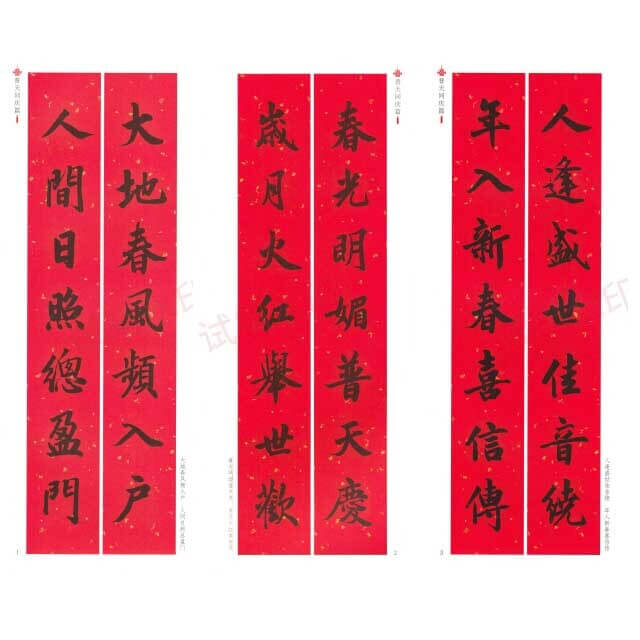 普天同庆篇
大地春風頻入戶
人間日照總盈門
大地春风频入户 人间日照总盈门
1
普天同庆篇
春光明媚普天慶
歲月火紅舉世歡
春光明媚普天庆 岁月火红举世欢
2
普天同庆篇
人逢盛世佳音繞
年入新春喜信傳
人逢盛世佳音绕 年入新春喜信传
3
试
印
试
印